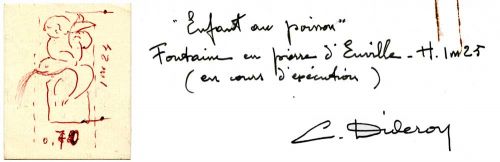 1m25
0.70
"Enfant au poisson"
Fontaine en pierre d'Euville - H. 1m25
(en cours d'exécution)
C. Dideron